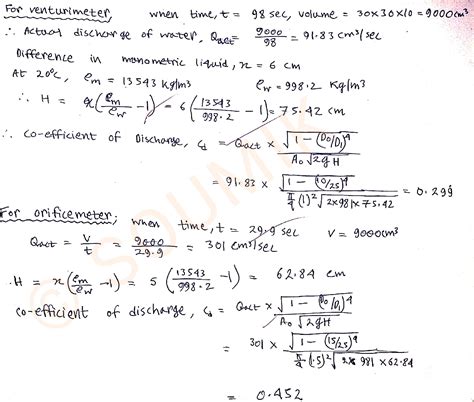 For venturimeter, when time, t = 98 sec, volume = 30x30x10 = 9000 cm³
∴ Actual discharge of water, Qact = 9000/98 = 91.83 cm³/sec
Difference in manometric liquid, x = 6 cm
At 20°C, ρm = 13543 Kg/m³ ρw = 998.2 Kg/m³
∴ H = x(ρm/ρw - 1) = 6(13543/998.2 - 1) = 75.42 cm
∴ co-efficient of Discharge, Cd = Qact × √(1 - (D0/D1)⁴) / A0√2gH
= 91.83 × √(1 - (10/25)⁴) / π/4 (1)² √2×981×75.42 = 0.299
For orificemeter, when time, t = 29.9 sec V = 9000cm³
Qact = V/t = 9000/29.9 = 301 cm³/sec
∴ H = x(ρm/ρw - 1) = 5(13543/998.2 - 1) = 62.84 cm
co-efficient of discharge, Cd = Qact × √(1 - (D0/D1)⁴) / A0√2gH
= 301 × √(1 - (15/25)⁴) / π/4 (1.5)² √2×981×62.84
= 0.452
© SOUMIK